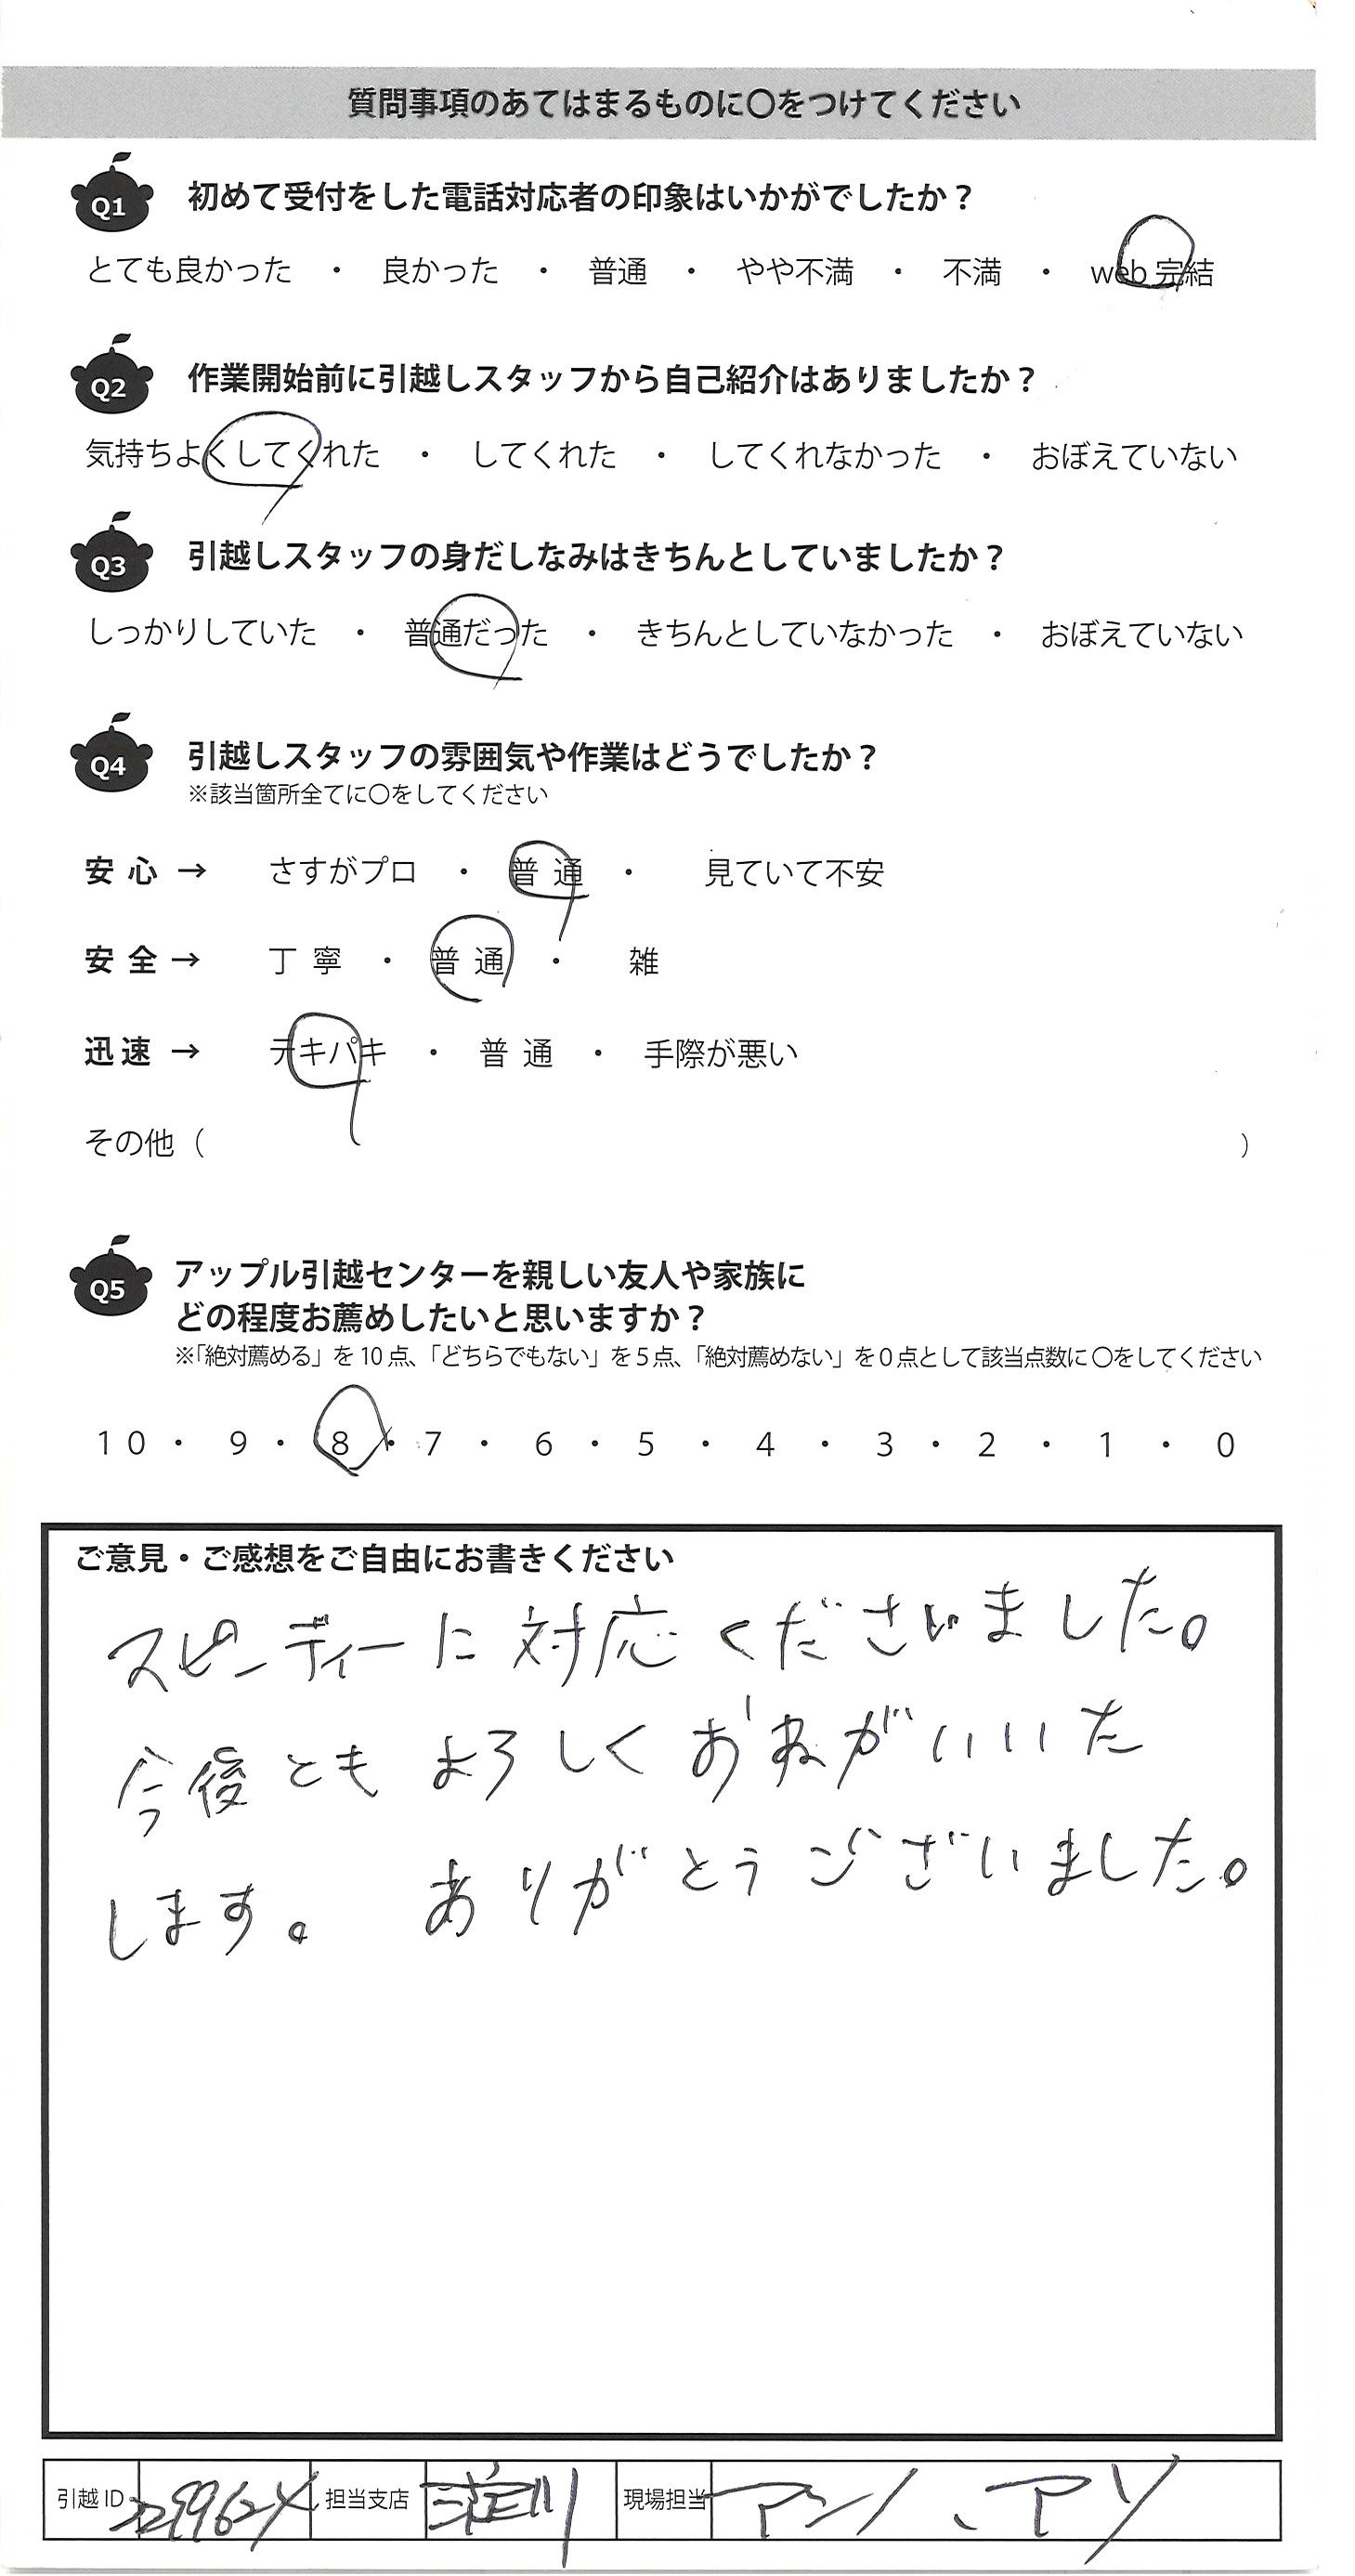 質問事項のあてはまるものに〇をつけてください
Q1 初めて受付をした電話対応者の印象はいかがでしたか？
とても良かった ・ 良かった ・ 普通 ・ やや不満 ・ 不満 ・ web 完結
Q2 作業開始前に引越しスタッフから自己紹介はありましたか？
気持ちよくしてくれた ・ してくれた ・ してくれなかった ・ おぼえていない
Q3 引越しスタッフの身だしなみはきちんとしていましたか？
しっかりしていた ・ 普通だった ・ きちんとしていなかった ・ おぼえていない
Q4 引越しスタッフの雰囲気や作業はどうでしたか？
※該当箇所全てに〇をしてください
安心 → さすがプロ ・ 普通 ・ 見ていて不安
安全 → 丁寧 ・ 普通 ・ 雑
迅速 → テキパキ ・ 普通 ・ 手際が悪い
その他（ ）
Q5 アップル引越センターを親しい友人や家族に
どの程度お薦めしたいと思いますか？
※「絶対薦める」を 10 点、「どちらでもない」を 5 点、「絶対薦めない」を 0 点として該当点数に 〇をしてください
10 ・ 9 ・ 8 ・ 7 ・ 6 ・ 5 ・ 4 ・ 3 ・ 2 ・ 1 ・ 0
ご意見・ご感想をご自由にお書きください
スピーディーに対応くださいました。
今後ともよろしくおねがいいた
します。 ありがとうございました。
引越 ID 担当支店 淀川 現場担当